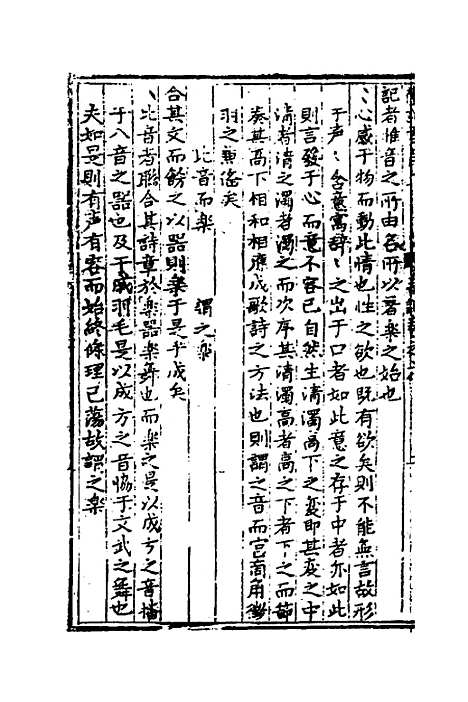 記者推音之所由各所以著楽之始也
〻心感于物而動此情也性之欲也既有欲矣則不能無言故形
于声〻含意寓辞〻之出于口者如此意之存于中者亦如此
則言發于心而意不容已自然生清濁高下之変即其変之中
清者清之濁者濁之而次序其清濁高者高之下者下之而節
奏其高下相和相應成歌詩之方法也則謂之音而宮商角徵
羽之 矣
比音而楽 謂之楽
合其文而飾之以器則楽于是乎成矣
〻比音者聯合其詩章於楽器楽舞也而楽之是以成方之音播
于八音之器也及干戚羽毛是以成方之音協于文武之舞也
夫如是則有声有容而始終條理已蕩故謂之楽